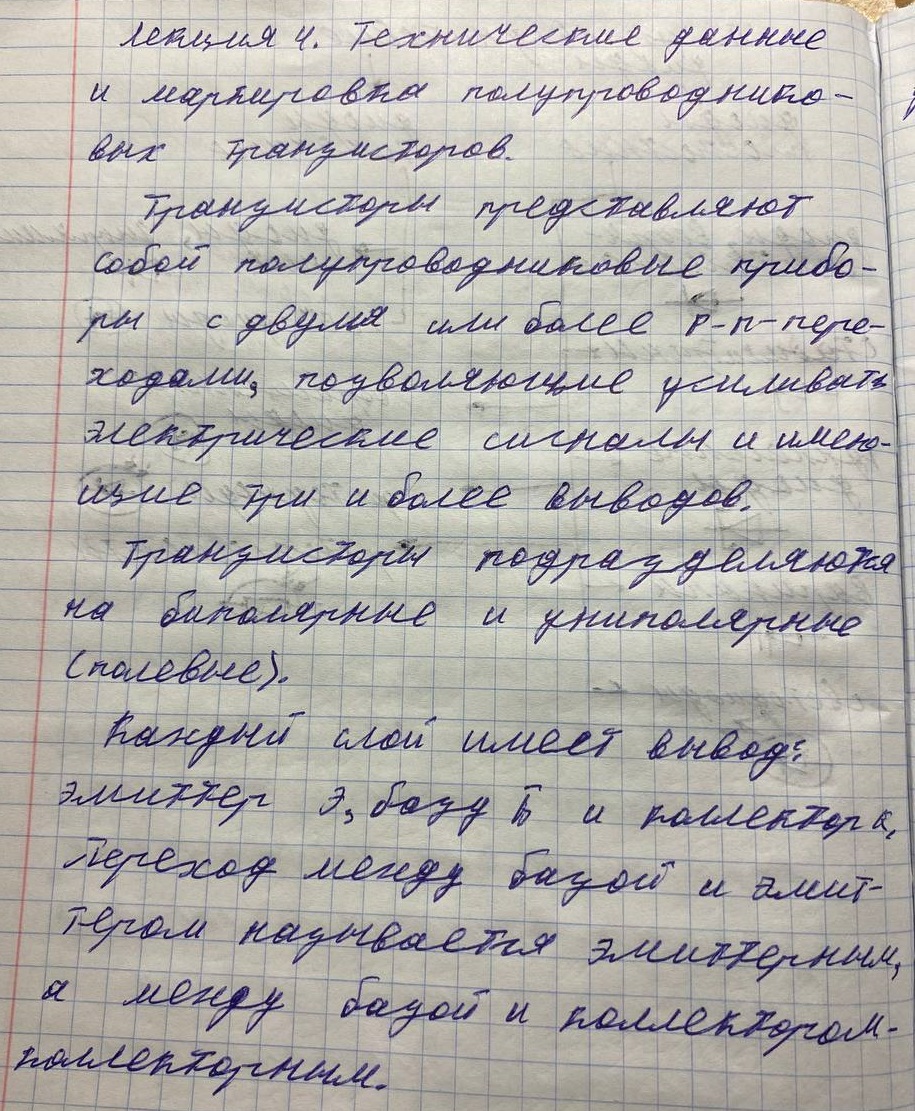 Лекция 4. Технические данные
и маркировка полупроводнико-
вых транзисторов.
Транзисторы представляют
собой полупроводниковые прибо-
ры с двумя или более p-n-пере-
ходами, позволяющие усиливать
электрические сигналы и имею-
щие три и более выводов.
Транзисторы подразделяются
на биполярные и униполярные
(полевые).
Каждый слой имеет вывод:
эмиттер Э, базу Б и коллектор К.
Переход между базой и эмит-
тером называется эмиттерным,
а между базой и коллектором-
коллекторным.